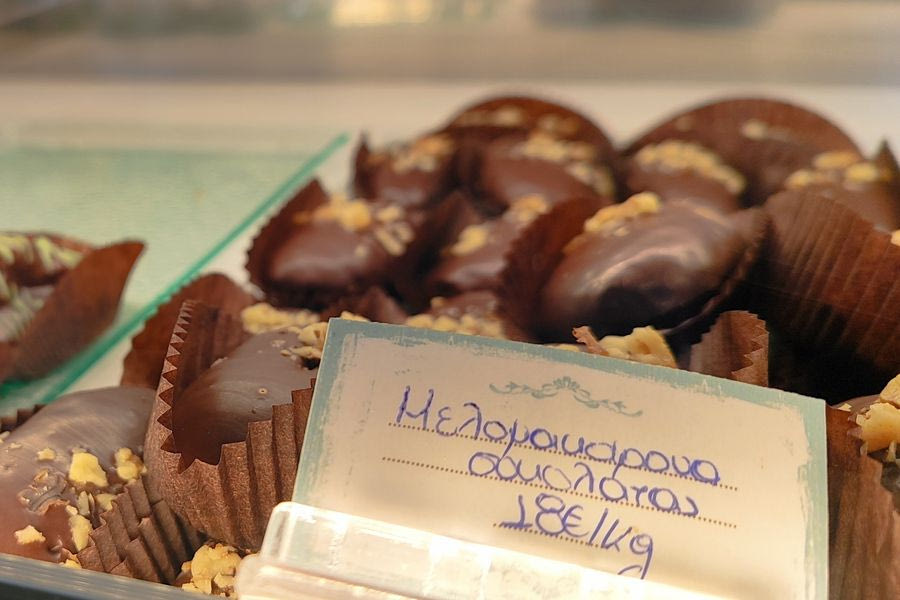 Μελομακαρονα
σοκολατας
18€/kg